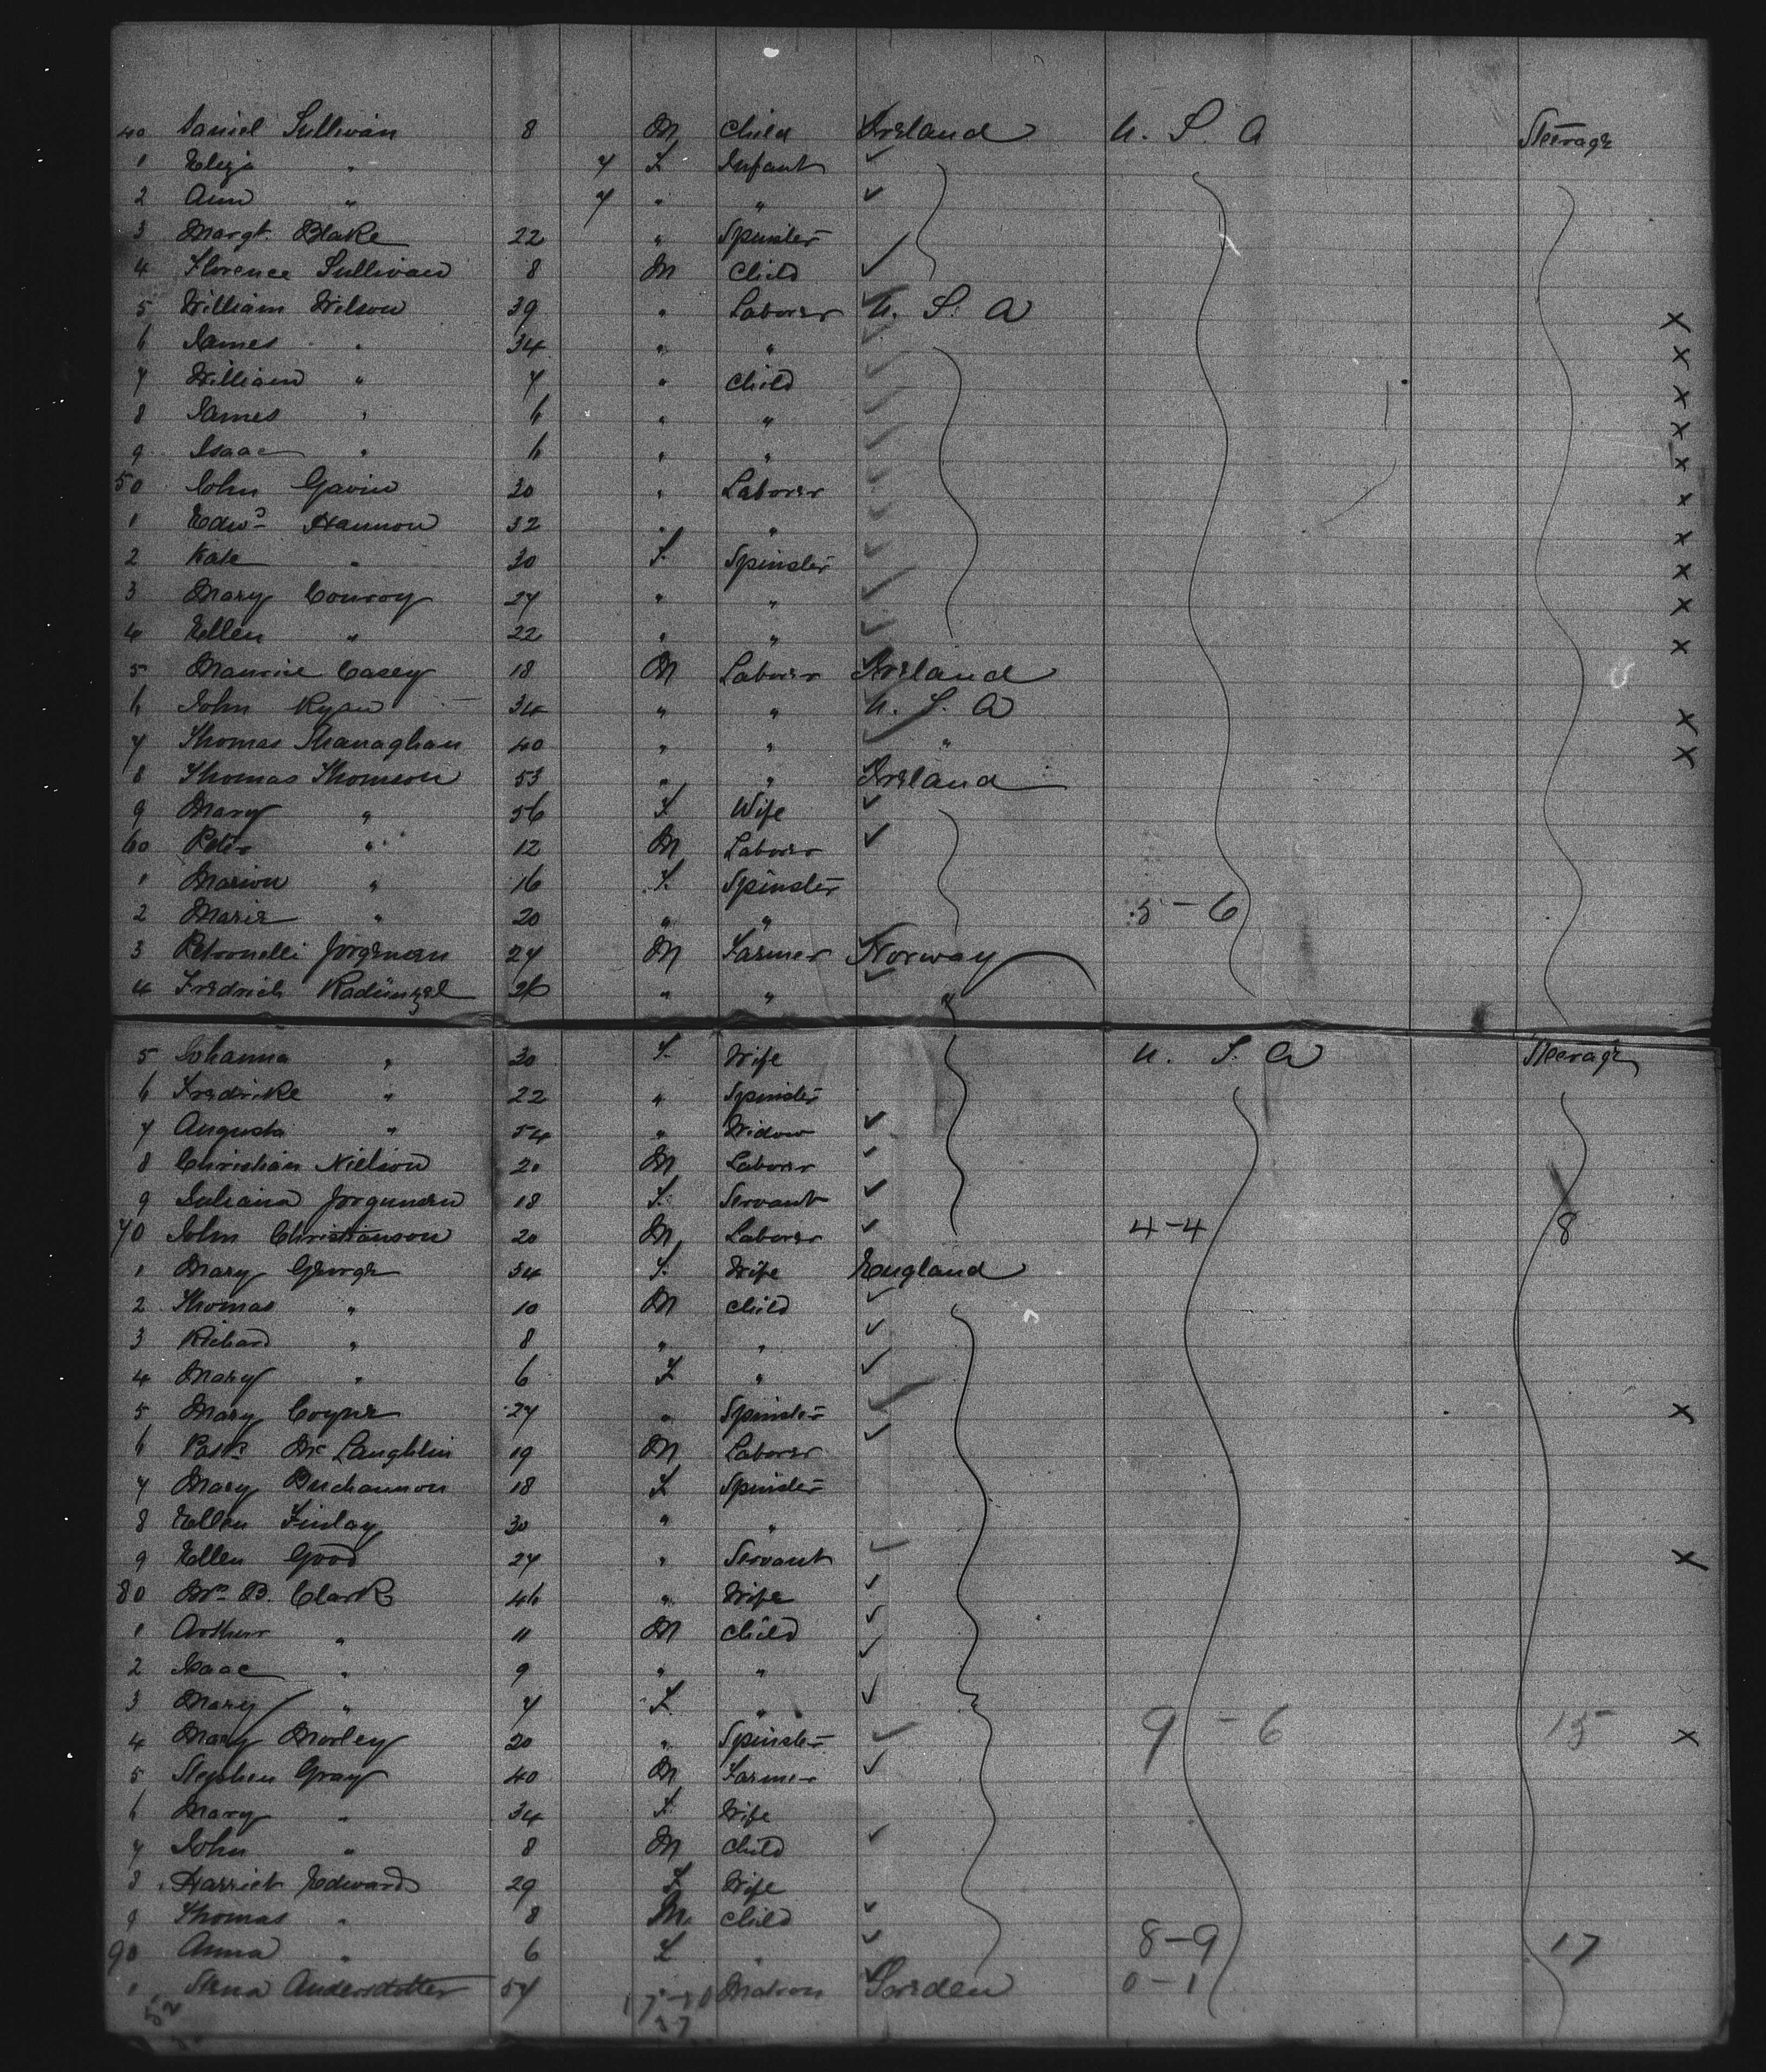 40 Daniel Sullivan 8 M Child Ireland U. S. A Steerage
1 Eliza " 7 F Infant
2 Ann " 7 " "
3 Margt. Blake 22 " Spinster
4 Florence Sullivan 8 M Child
5 William Wilson 39 " Laborer U. S. A X
6 James " 34 " " X
7 William " 7 " Child X
8 James " 6 " " X
9 Isaac " 6 " " X
50 John Gavin 30 " Laborer X
1 Edwd Hannon 32 " " X
2 Kate " 30 F Spinster X
3 Mary Conroy 27 " " X
4 Ellen " 22 " " X
5 Maurice Casey 18 M Laborer Ireland
6 John Ryan 34 " " U. S. A X
7 Thomas Shanaghan 40 " " " X
8 Thomas Thomson 53 " " Ireland
9 Mary " 56 F Wife
60 Peter " 12 M Laborer
1 Marion " 16 F Spinster
2 Marie " 20 " " 5-6
3 Petronelli Jorgensen 27 M Farmer Norway
4 Fredrich Radünzel 26 " " "
5 Johanna " 30 F Wife U. S. A Steerage
6 Fredrike " 22 " Spinster
7 Augusta " 54 " Widow
8 Christian Nielson 20 M Laborer
9 Juliana Jorgunsen 18 F Servant
70 John Christianson 20 M Laborer 4-4 8
1 Mary George 34 F Wife England
2 Thomas " 10 M Child
3 Richard " 8 " "
4 Mary " 6 F "
5 Mary Coyne 27 " Spinster X
6 Patk Mc Laughlin 19 M Laborer
7 Mary Buchannon 18 F Spinster
8 Ellen Finlay 30 " "
9 Ellen Good 27 " Servant X
80 Mrs B. Clark 46 " Wife
1 Arthur " 11 M Child
2 Isaac " 9 " "
3 Mary " 7 F "
4 Mary Morley 20 " Spinster 9-6 15 X
5 Stephen Gray 40 M Farmer
6 Mary " 34 F Wife
7 John " 8 M Child
8 Harriet Edwards 29 F Wife
9 Thomas " 8 M Child
90 Anna " 6 F " 8-9 17
1 Anderdotter 57 " Matron Sweden 0-1
52 37